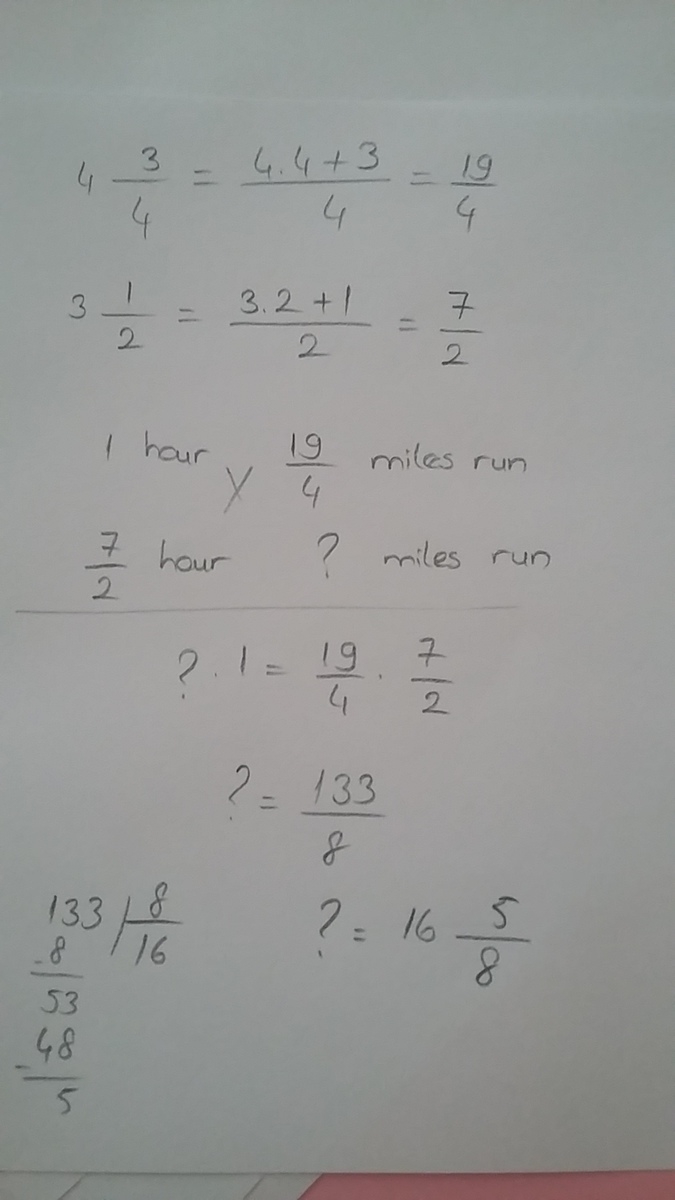 4 3/4 = (4.4+3)/4 = 19/4
3 1/2 = (3.2+1)/2 = 7/2
1 hour 19/4 miles run
7/2 hour ? miles run
? . 1 = 19/4 . 7/2
? = 133/8
133 8
-8 16
53
-48
5
? = 16 5/8